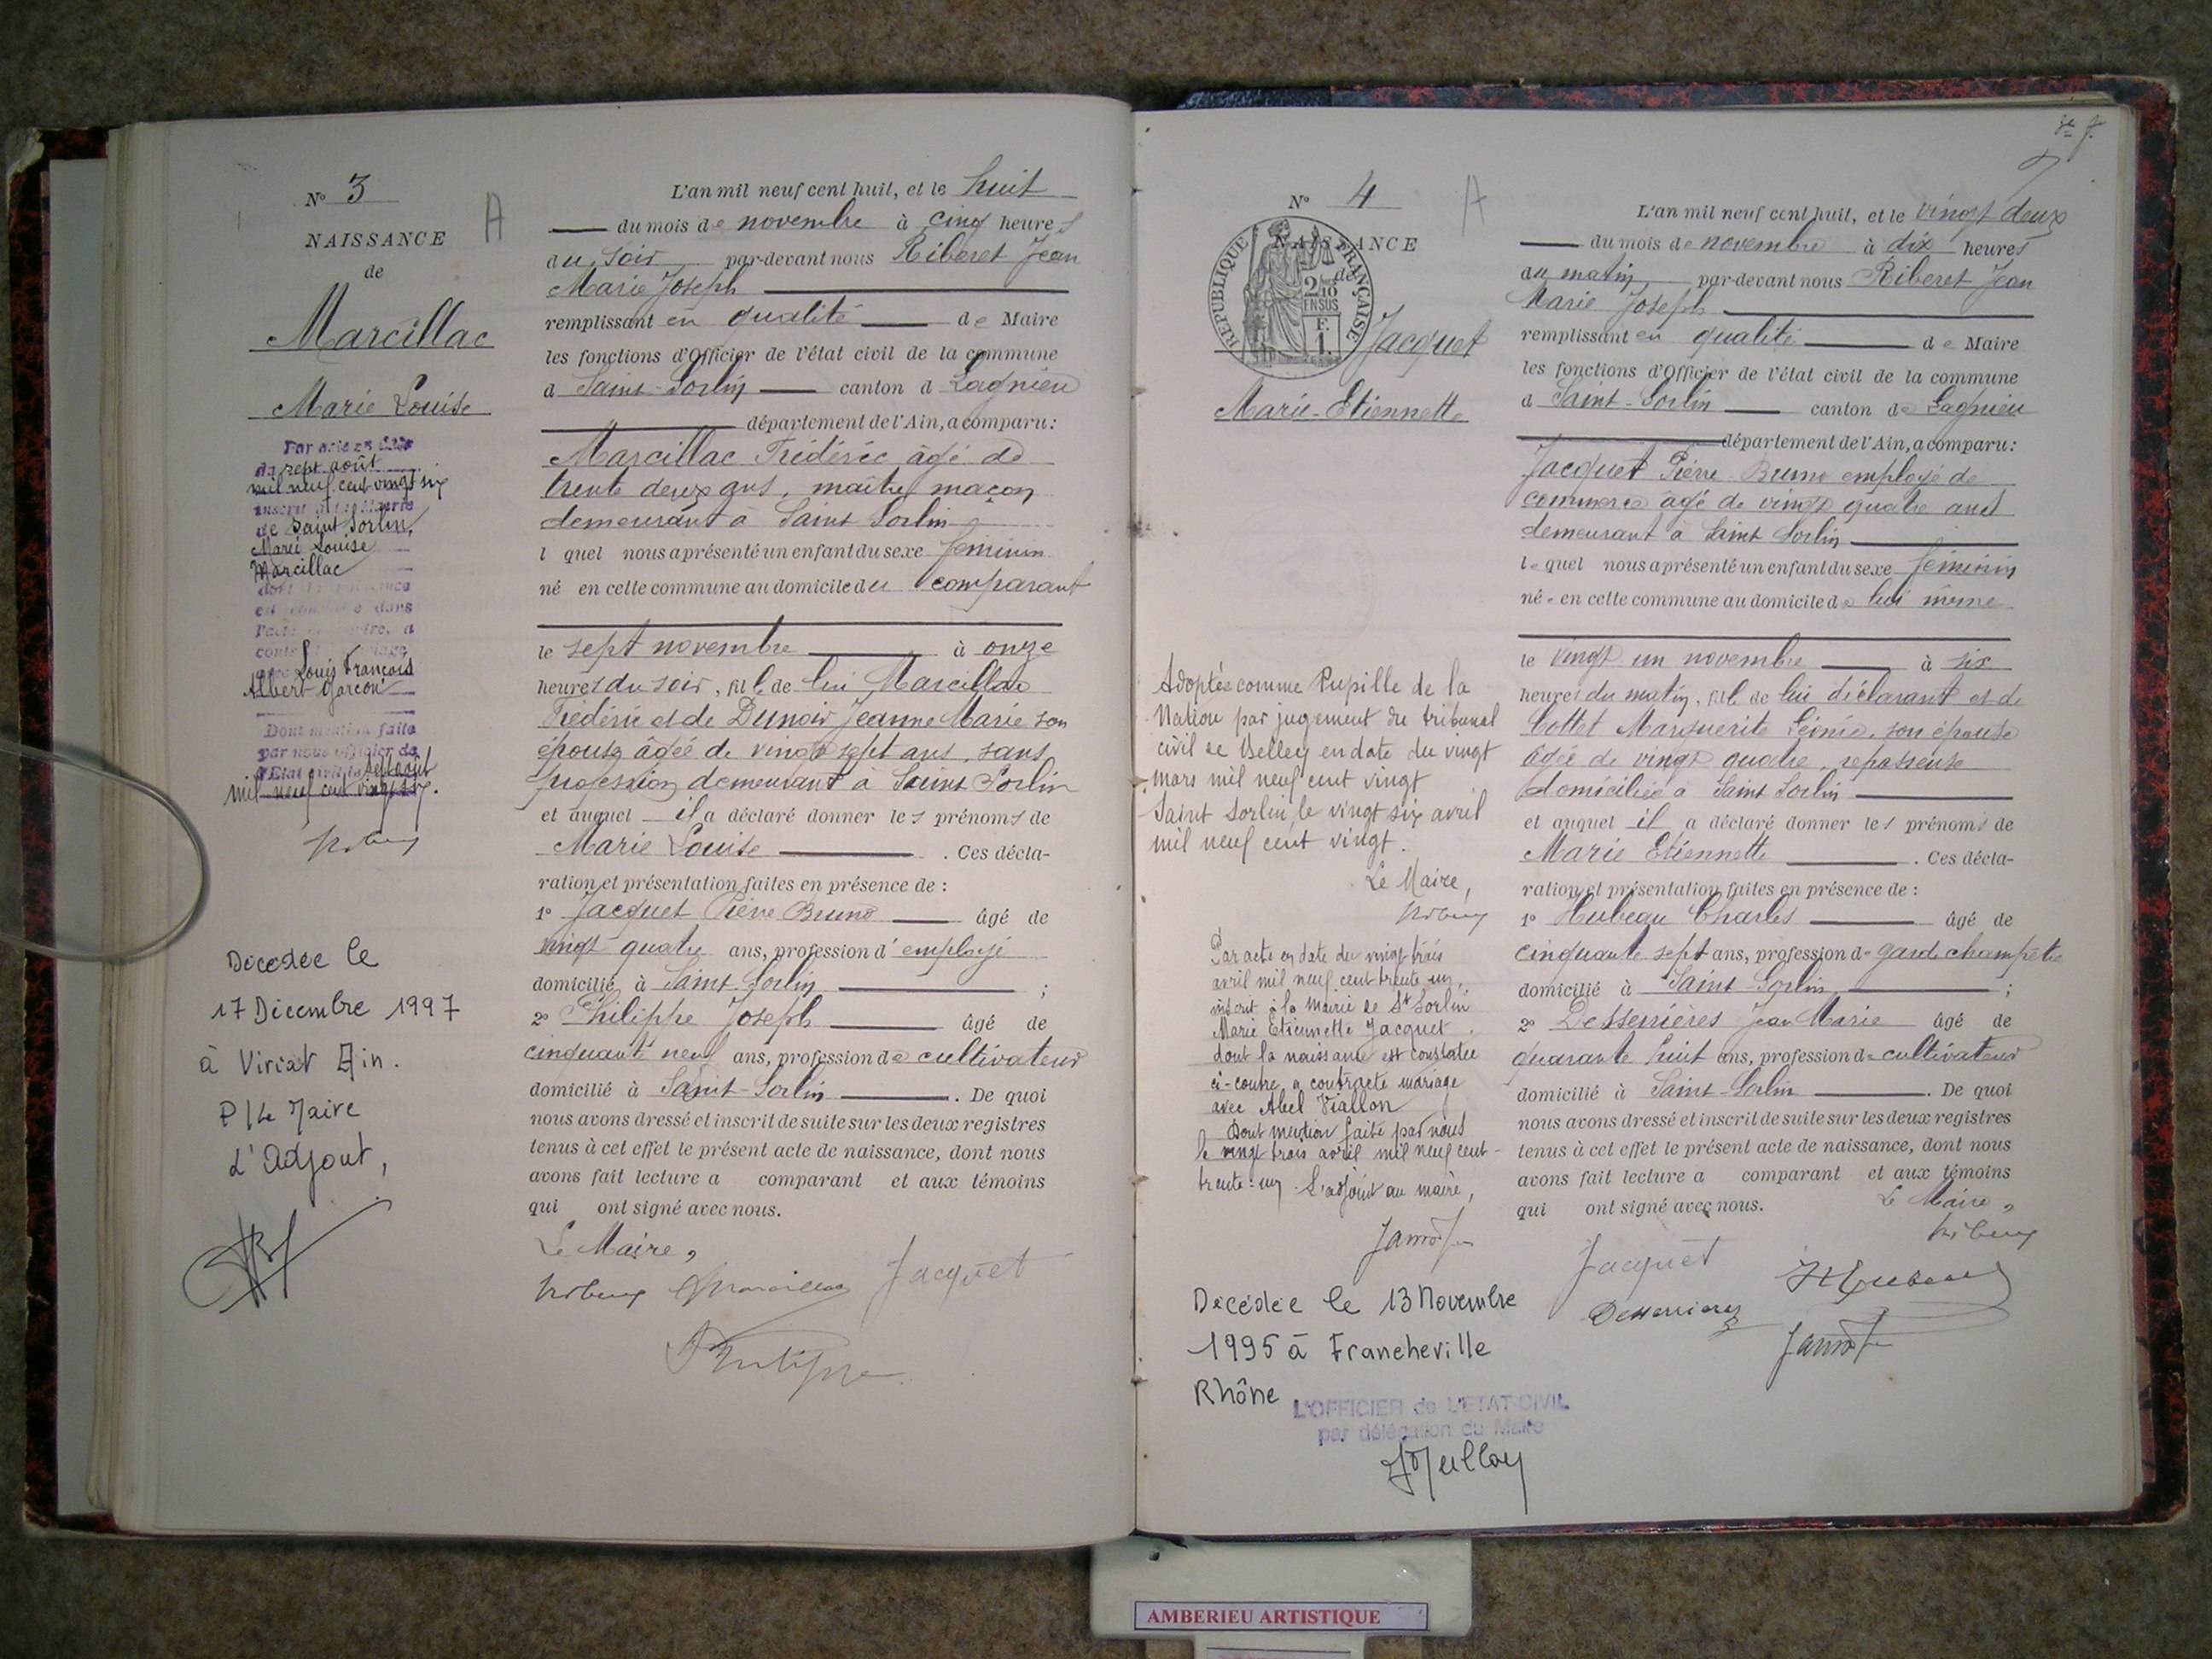 N° 3
NAISSANCE
de
Marcillac
Marie Louise
Par acte en date
du sept août
mil neuf cent vingt six
inscrit à la Mairie
de Saint Sorlin,
Marie Louise
Marcillac
dont la naissance
est dans
l'acte a
Louis François
Albert Garçon
Dont mention faite
par nous officier de
l'Etat civil le sept août
mil neuf cent vingt six.
Décédée le
17 Décembre 1997
à Viriat Ain.
P/Le Maire
L'Adjoint,
A
L'an mil neuf cent huit, et le huit
du mois de novembre à cinq heures
du soir par-devant nous Riberet Jean
Marie Joseph
remplissant en qualité de Maire
les fonctions d'Officier de l'état civil de la commune
d Saint-Sorlin canton d Lagnieu
département de l'Ain, a comparu:
Marcillac Frédéric âgé de
trente deux ans, maître maçon
demeurant à Saint Sorlin
l quel nous a présenté un enfant du sexe féminin
né en cette commune au domicile du comparant
le sept novembre à onze
heures du soir, fil l de lui Marcillac
Frédéric et de Dunoir Jeanne Marie son
épouse âgée de vingt sept ans, sans
profession demeurant à Saint Sorlin
et auquel il a déclaré donner les prénoms de
Marie Louise . Ces décla-
ration et présentation faites en présence de :
1° Jacquet Pierre Bruno âgé de
vingt quatre ans, profession d'employé
domicilié à Saint-Sorlin ;
2° Philippe Joseph âgé de
cinquante neuf ans, profession de cultivateur
domicilié à Saint-Sorlin . De quoi
nous avons dressé et inscrit de suite sur les deux registres
tenus à cet effet le présent acte de naissance, dont nous
avons fait lecture a comparant et aux témoins
qui ont signé avec nous.
Le Maire,
Marcillac Jacquet
Philippe
N° 4
NAISSANCE
de
RÉPUBLIQUE FRANÇAISE
2/10
EN SUS
F.
1.
Jacquet
Marie-Etiennette
Adoptée comme Pupille de la
Nation par jugement du tribunal
civil de Belley en date du vingt
mars mil neuf cent vingt
Saint Sorlin le vingt six avril
mil neuf cent vingt.
Le Maire,
Par acte en date du vingt trois
avril mil neuf cent trente un,
inscrit à la mairie de St Sorlin
Marie Etiennette Jacquet
dont la naissance est constatée
ci-contre, a contracté mariage
avec Abel Viallon
Dont mention faite par nous
le vingt trois avril mil neuf cent
trente-un. L'adjoint au maire,
Décédée le 13 Novembre
1995 à Francheville
Rhône
L'OFFICIER de L'ETAT-CIVIL
par délégation du Maire
A
L'an mil neuf cent huit, et le vingt deux
du mois de novembre à dix heures
du matin par-devant nous Riberet Jean
Marie Joseph
remplissant en qualité de Maire
les fonctions d'Officier de l'état civil de la commune
d Saint-Sorlin canton de Lagnieu
département de l'Ain, a comparu:
Jacquet Pierre Bruno employé de
commerce âgé de vingt quatre ans
demeurant à Saint Sorlin
lequel nous a présenté un enfant du sexe féminin
né en cette commune au domicile de lui même
le vingt un novembre à six
heures du matin, fil l de lui déclarant et de
Cottet Marguerite Léonie, son épouse
âgée de vingt quatre, repasseuse
domiciliée à Saint Sorlin
et auquel il a déclaré donner les prénoms de
Marie Etiennette . Ces décla-
ration et présentation faites en présence de :
1° Hubeau Charles âgé de
cinquante sept ans, profession de garde champêtre
domicilié à Saint-Sorlin ;
2° Desserrières Jean Marie âgé de
quarante huit ans, profession de cultivateur
domicilié à Saint-Sorlin . De quoi
nous avons dressé et inscrit de suite sur les deux registres
tenus à cet effet le présent acte de naissance, dont nous
avons fait lecture a comparant et aux témoins
qui ont signé avec nous. Le Maire,
Jacquet Hubeau
Desserrieres
AMBERIEU ARTISTIQUE